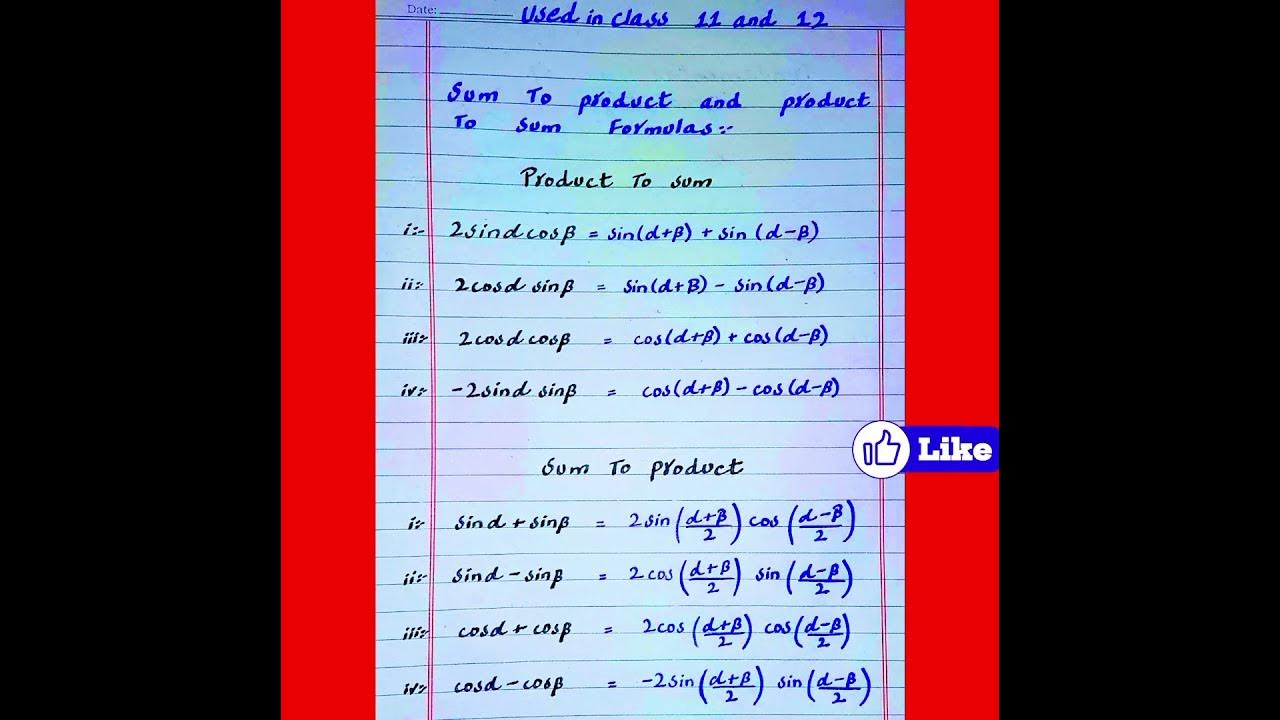 Date:
Used in class 11 and 12
Sum To product and product
To sum Formulas:-
Product To sum
i:- 2sinα cosβ = sin(α+β) + sin (α-β)
ii:- 2cosα sinβ = sin(α+β) - sin(α-β)
iii:- 2cosα cosβ = cos(α+β) + cos(α-β)
iv:- -2sinα sinβ = cos(α+β) - cos(α-β)
Like
Sum To product
i:- sinα + sinβ = 2sin(α+β/2) cos(α-β/2)
ii:- sinα - sinβ = 2cos(α+β/2) sin(α-β/2)
iii:- cosα + cosβ = 2cos(α+β/2) cos(α-β/2)
iv:- cosα - cosβ = -2sin(α+β/2) sin(α-β/2)